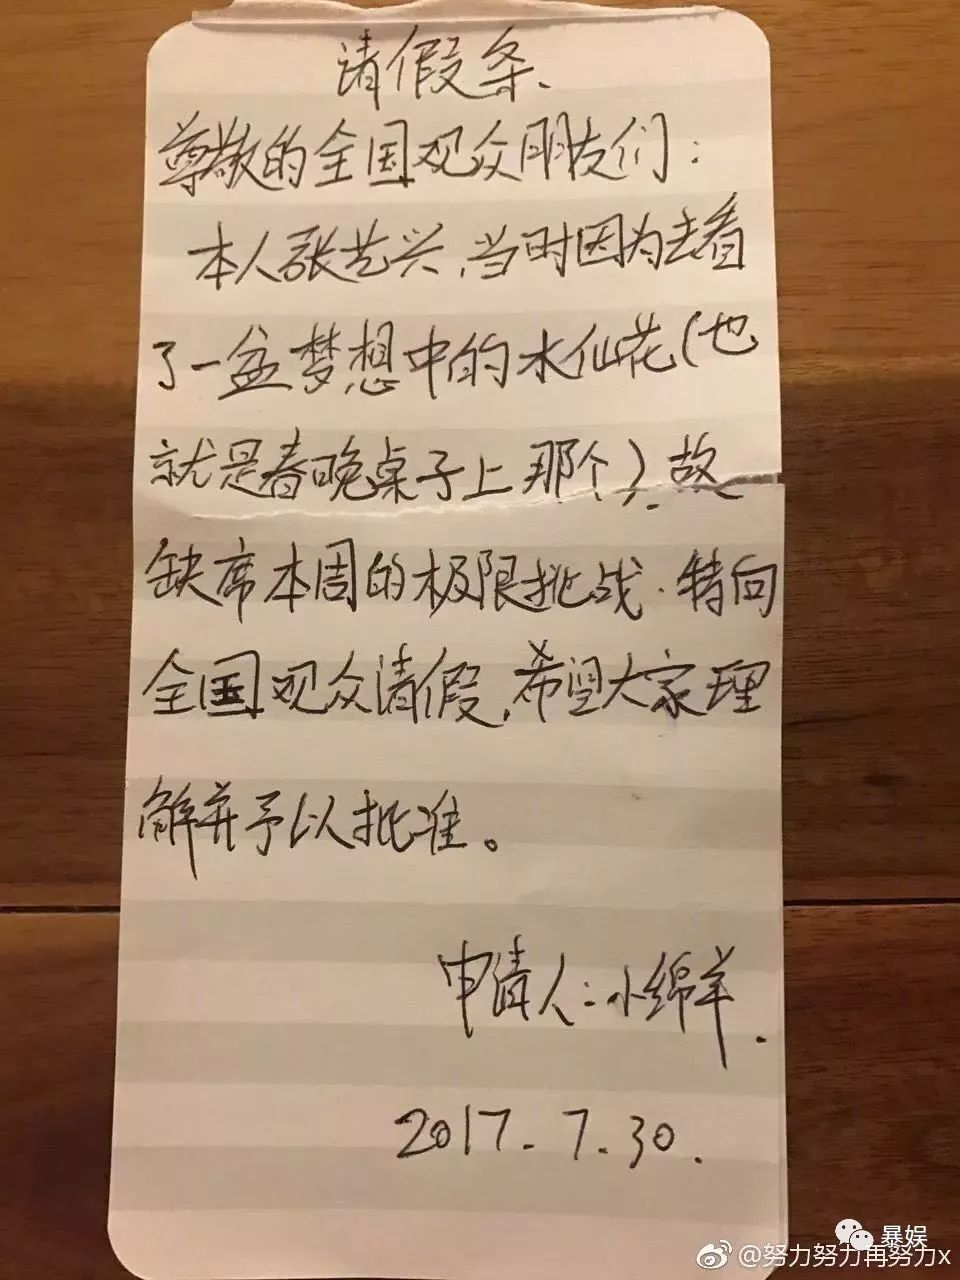 请假条.
尊敬的全国观众朋友们：
本人张艺兴,当时因为去看
了一盆梦想中的水仙花(也
就是春晚桌子上那个).故
缺席本周的极限挑战.特向
全国观众请假,希望大家理
解并予以批准。
申请人:小绵羊.
2017.7.30.
暴娱
@努力努力再努力x